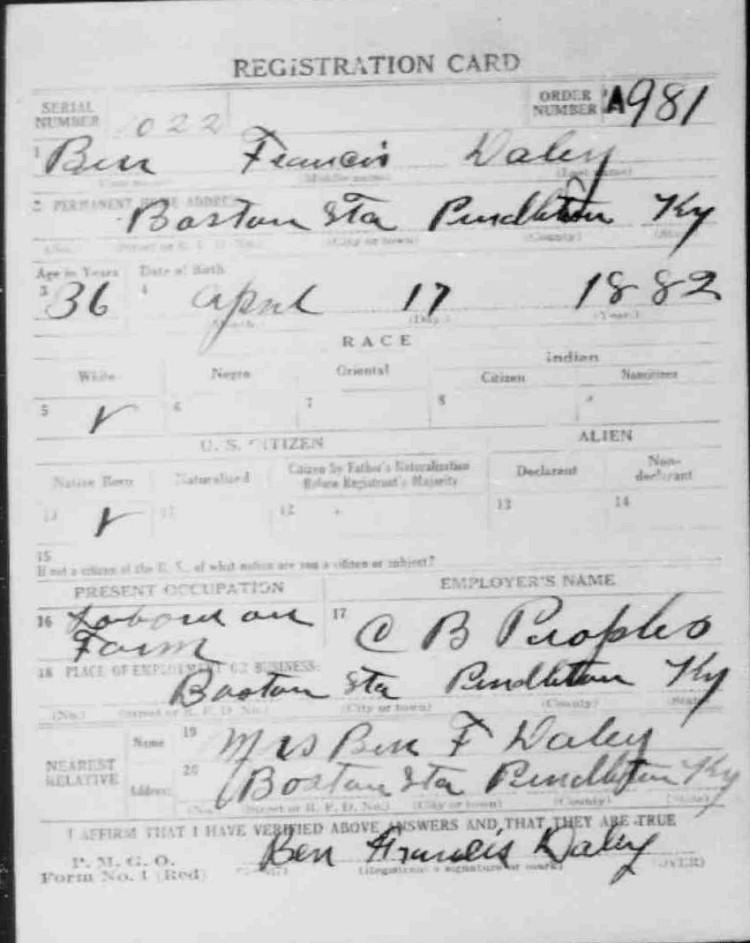 REGISTRATION CARD
SERIAL NUMBER 1022 ORDER NUMBER A981
1 Ben Francis Daley
(Middle name) (Last name)
2 PERMANENT HOME ADDRESS
Boston Sta Pendleton Ky
(No.) (Street or R. F. D. No.) (City or town) (County) (State)
Age in Years Date of Birth
3 36 4 April 17 1882
(Month) (Day) (Year)
RACE
White Negro Oriental Indian
Citizen Noncitizen
5 ✓ 6 7 8
U. S. CITIZEN ALIEN
Native Born Naturalized Citizen by Father's Naturalization Before Registrant's Majority Declarant Non-declarant
10 ✓ 11 12 13 14
15
If not a citizen of the U. S., of what nation are you a citizen or subject?
PRESENT OCCUPATION EMPLOYER'S NAME
16 Labor on Farm 17 C B Peoples
18 PLACE OF EMPLOYMENT OR BUSINESS:
Boston Sta Pendleton Ky
(No.) (Street or R. F. D. No.) (City or town) (County) (State)
NEAREST RELATIVE Name 19 Mrs Ben F Daley
Address 20 Boston Sta Pendleton Ky
(No.) (Street or R. F. D. No.) (City or town) (County) (State)
I AFFIRM THAT I HAVE VERIFIED ABOVE ANSWERS AND THAT THEY ARE TRUE
P. M. G. O.
Form No. 1 (Red) Ben Francis Daley
(Registrant's signature or mark) (OVER)